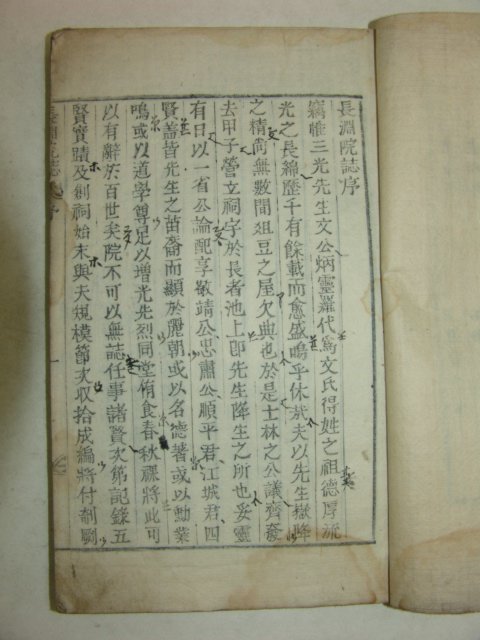 長淵院誌序
竊惟三光先生文公炳靈羅代爲文氏得姓之祖德厚流
光之長綿歷千有餘載而愈盛嗚乎休哉夫以先生嶽降
之精尙無數間俎豆之屋欠典也於是士林之公議齊發
去甲子營立祠宇於長者池上卽先生降生之所也妥靈
有日以一省公論配享敬靖公忠肅公順平君江城君四
賢蓋皆先生之苗裔而顯於麗朝或以名德著或以勳業
鳴或以道學尊足以增光先烈同堂侑食春秋祼將此可
以有辭於百世矣院不可以無誌任事諸賢次第記錄五
賢實蹟及創祠始末與夫規模節次収拾成編將付剞劂
長淵院誌 序 一